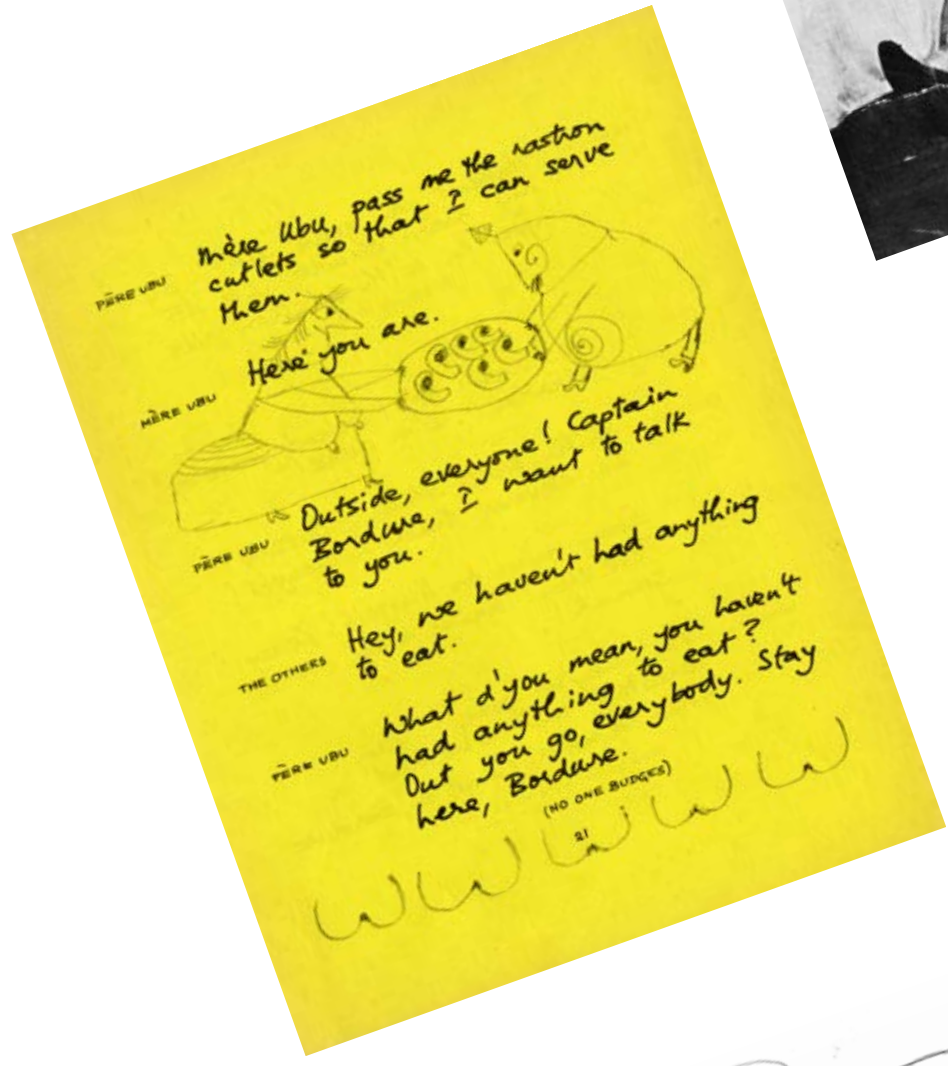 PÈRE UBU Mère Ubu, pass me the rastron
cutlets so that I can serve
them.
MÈRE UBU Here you are.
PÈRE UBU Outside, everyone! Captain
Bordure, I want to talk
to you.
THE OTHERS Hey, we haven't had anything
to eat.
PÈRE UBU What d'you mean, you haven't
had anything to eat?
Out you go, everybody. Stay
here, Bordure.
(NO ONE BUDGES)
21